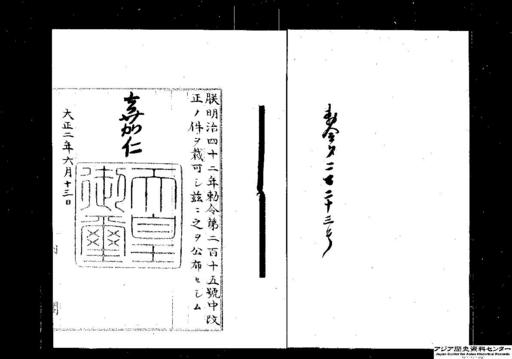 勅令第二百二十三号
朕明治四十二年勅令第二百十五號中改
正ノ件ヲ裁可シ茲ニ之ヲ公布セシム
嘉仁
天皇
御璽
大正二年六月十三日
内閣
アジア歴史資料センター
Japan Center for Asian Historical Records